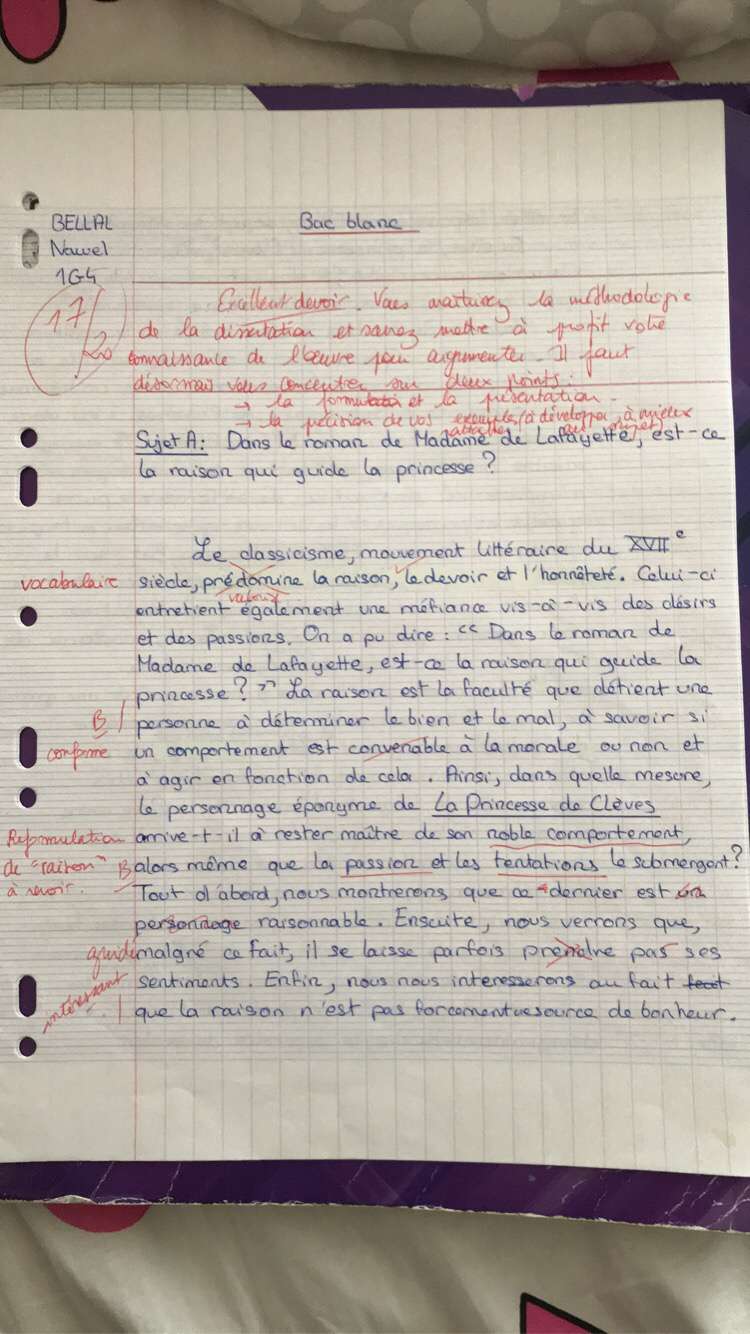 BELLAL
Bac blanc
Nawel
1G4
17/20
Excellent devoir. Vous maîtrisez la méthodologie
de la dissertation et savez mettre à profit votre
connaissance de l'œuvre pour argumenter. Il faut
désormais vous concentrer sur deux points :
→ la formulation et la présentation.
→ la précision de vos exemples (à développer, à mieux
rattacher au sujet)
Sujet A : Dans le roman de Madame de Lafayette, est-ce
la raison qui guide la princesse ?
Le classicisme, mouvement littéraire du XVIIe
vocabulaire siècle, prédomine la raison, le devoir et l'honnêteté. Celui-ci
entretient également une méfiance vis-à-vis des désirs
et des passions. On a pu dire : "Dans le roman de
Madame de Lafayette, est-ce la raison qui guide la
princesse ?" La raison est la faculté que détient une
B personne à déterminer le bien et le mal, à savoir si
conforme un comportement est convenable à la morale ou non et
à agir en fonction de cela. Ainsi, dans quelle mesure,
le personnage éponyme de La Princesse de Clèves
Reformulation arrive-t-il à rester maître de son noble comportement,
de "raison" B alors même que la passion et les tentations le submergent ?
à revoir. Tout d'abord, nous montrerons que ce dernier est un
personnage raisonnable. Ensuite, nous verrons que,
guider malgré ce fait, il se laisse parfois prendre pas ses
sentiments. Enfin, nous nous interesserons au fait
intéressant ! que la raison n'est pas forcement source de bonheur.